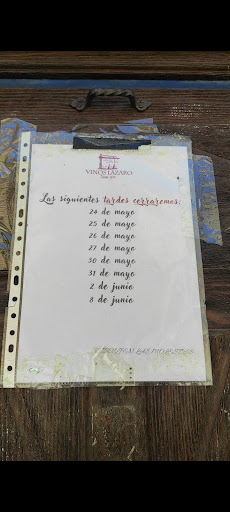 VINOS LÁZARO
Las siguientes tardes cerraremos:
24 de mayo
25 de mayo
26 de mayo
27 de mayo
30 de mayo
31 de mayo
2 de junio
8 de junio